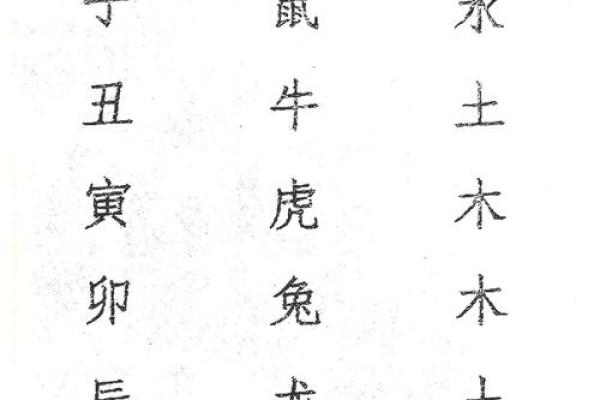 子 鼠 水
丑 牛 土
寅 虎 木
卯 兔 木
辰 龙 土